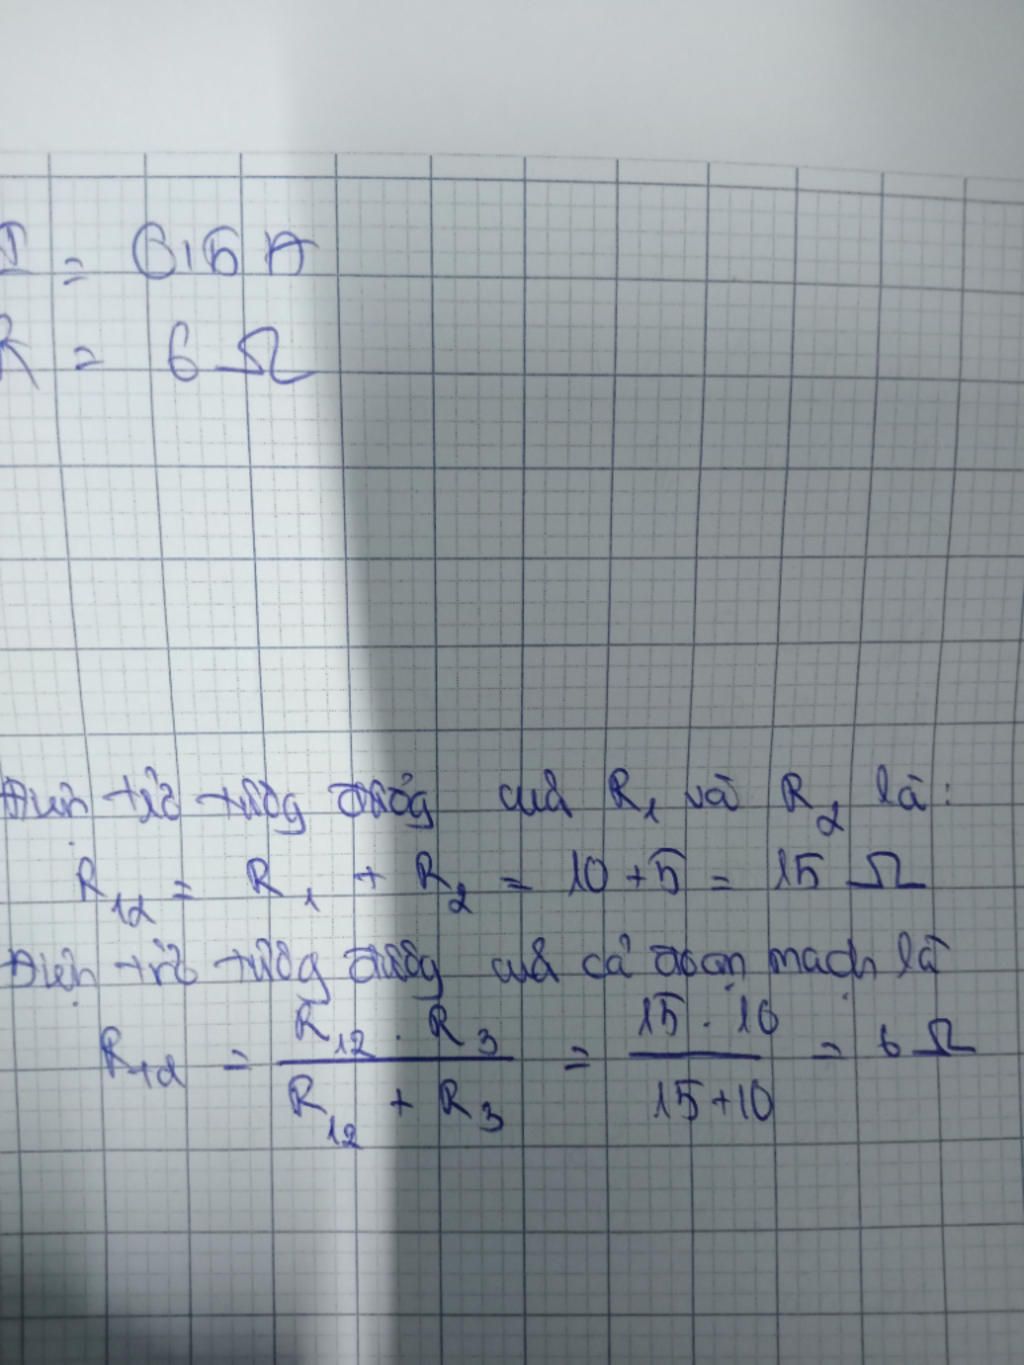 I = 0,5 A
R = 6 Ω
Điện trở tương đương của R₁ và R₂ là:
R₁₂ = R₁ + R₂ = 10 + 5 = 15 Ω
Điện trở tương đương của cả đoạn mạch là
R_tđ = \frac{R₁₂ . R₃}{R₁₂ + R₃} = \frac{15 . 10}{15 + 10} = 6 Ω